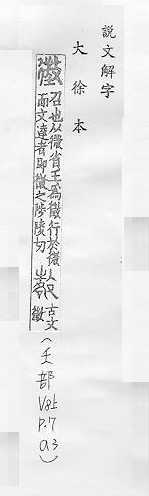 說文解字
大徐本
徵
召也从微省壬為徵行於微
而文達者即徵之陟陵切
古文
徵
(壬部 V8上 P.7 a3)